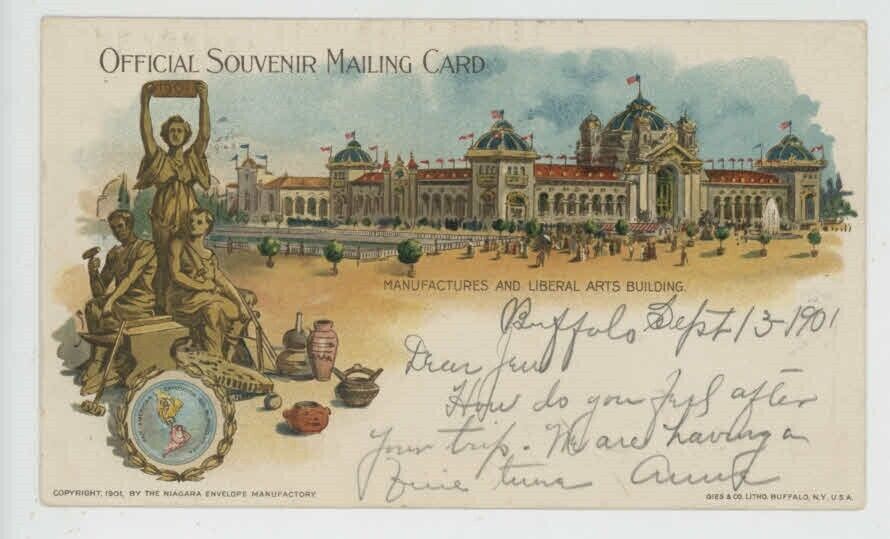 OFFICIAL SOUVENIR MAILING CARD
1901
MANUFACTURES AND LIBERAL ARTS BUILDING.
Buffalo Sept 13-1901
Dear Jen
How do you feel after
your trip. We are having a
fine time Anna
COPYRIGHT, 1901, BY THE NIAGARA ENVELOPE MANUFACTORY.
GIES & CO. LITHO. BUFFALO, N.Y. U.S.A.